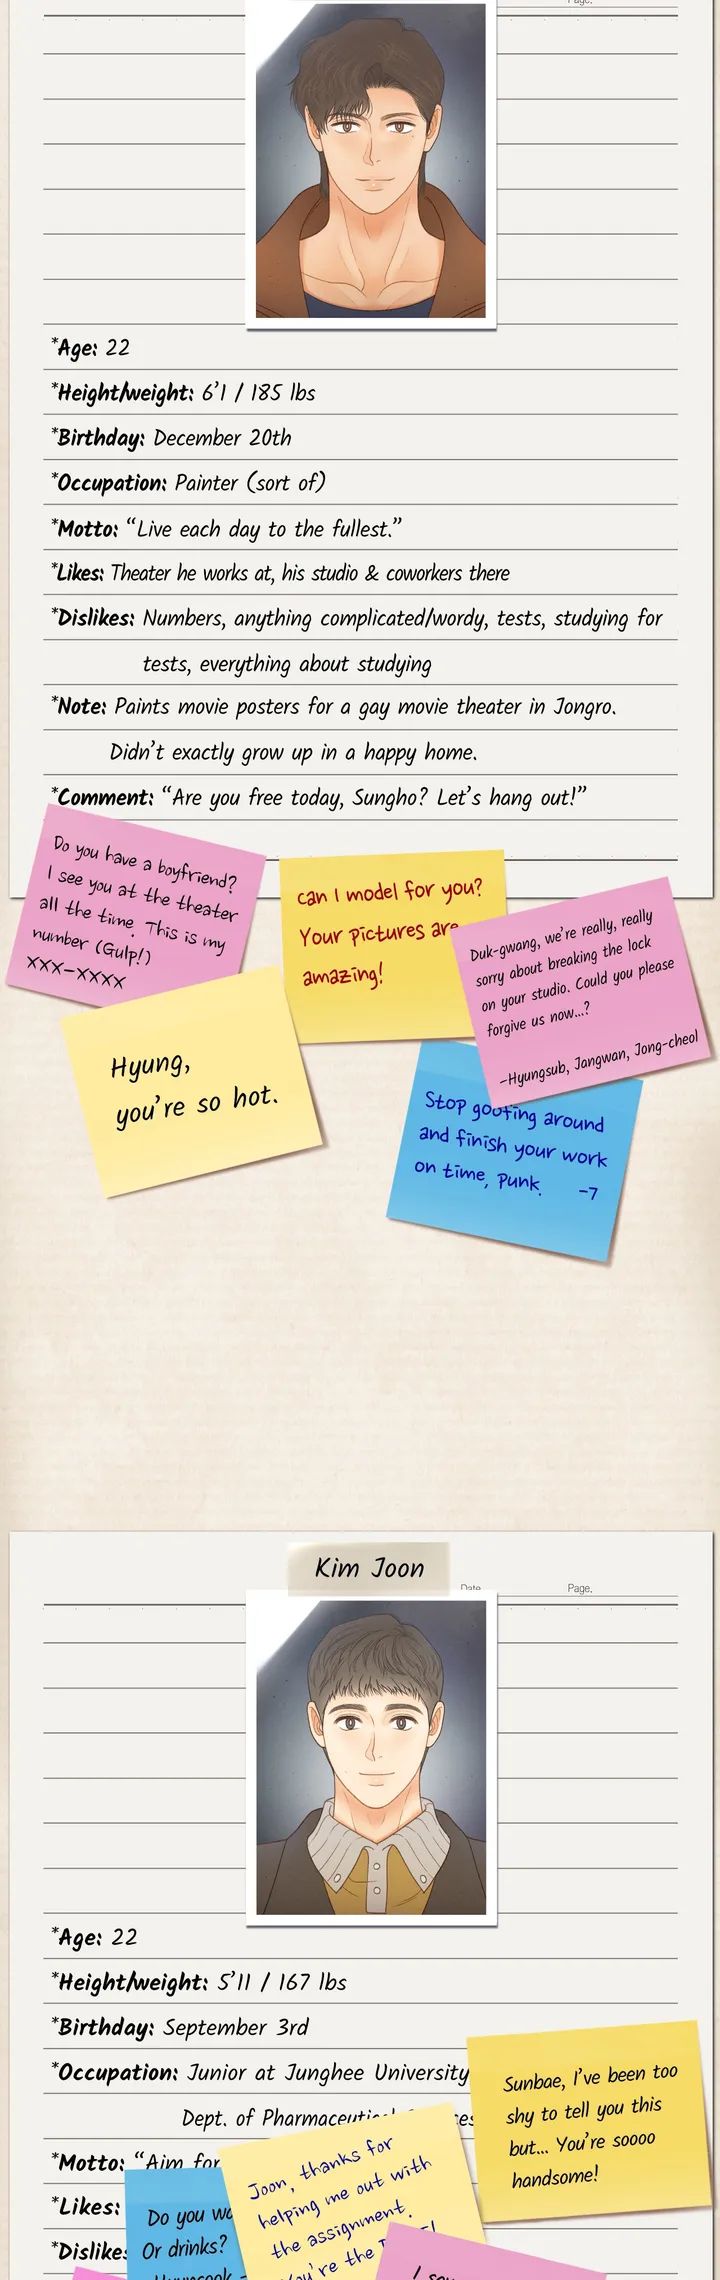 Page.
*Age: 22
*Height/weight: 6'1 / 185 lbs
*Birthday: December 20th
*Occupation: Painter (sort of)
*Motto: “Live each day to the fullest.”
*Likes: Theater he works at, his studio & coworkers there
*Dislikes: Numbers, anything complicated/wordy, tests, studying for
tests, everything about studying
*Note: Paints movie posters for a gay movie theater in Jongro.
Didn't exactly grow up in a happy home.
*Comment: “Are you free today, Sungho? Let's hang out!”
Do you have a boyfriend?
I see you at the theater
all the time. This is my
number (Gulp!)
XXX-XXXX
can I model for you?
Your pictures are
amazing!
Duk-gwang, we're really, really
sorry about breaking the lock
on your studio. Could you please
forgive us now...?
-Hyungsub, Jangwan, Jong-cheol
Hyung,
you're so hot.
Stop goofing around
and finish your work
on time, punk.
-7
Kim Joon
Date
Page.
*Age: 22
*Height/weight: 5'11 / 167 lbs
*Birthday: September 3rd
*Occupation: Junior at Junghee University
Dept. of Pharmaceutical
*Motto: “Aim for
*Likes:
*Dislikes:
Sunbae, I've been too
shy to tell you this
but... You're soooo
handsome!
Joon, thanks for
helping me out with
the assignment.
You're the
Do you
Or drinks?
I